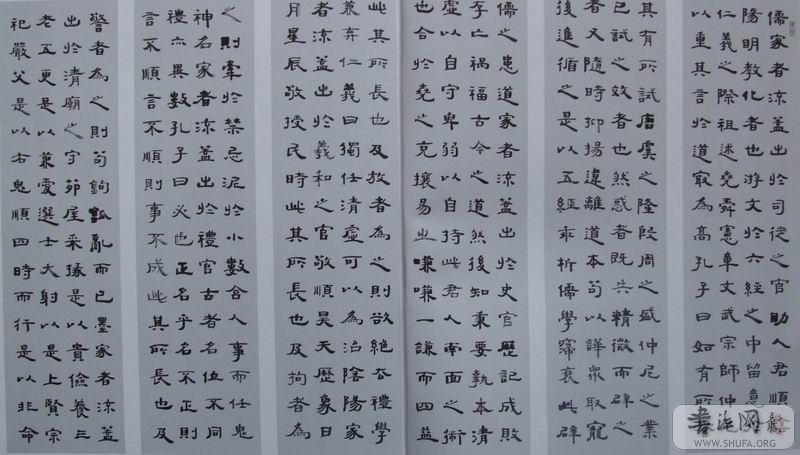 儒家者流蓋出於司徒之官助人君順
陽明教化者也游文於六經之中留意
仁義之際祖述堯舜憲章文武宗師仲
以重其言於道冣為高孔子曰如有所
其有所試唐虞之隆殷周之盛仲尼之業
已試之效者也然惑者既失精微而辟之
者又隨時抑揚違離道本苟以譁眾取寵
後進循之是以五經乖析儒學寖衰此辟
儒之患道家者流蓋出於史官歷記成敗
存亡禍福古今之道然後知秉要執本清
虛以自守卑弱以自持此君人南面之術
也合於堯之克攘易之嗛嗛一謙而四益
此其所長也及放者為之則欲絕去禮學
兼弃仁義曰獨任清虛可以為治陰陽家
者流蓋出於羲和之官敬順昊天歷象日
月星辰敬授民時此其所長也及拘者為
之則牽於禁忌泥於小數舍人事而任鬼
神名家者流蓋出於禮官古者名位不同
禮亦異數孔子曰必也正名乎名不正則
言不順言不順則事不成此其所長也及
警者為之則苟鉤釽亂而已墨家者流蓋
出於清廟之守茆屋采椽是以貴儉養三
老五更是以兼愛選士大射是以上賢宗
祀嚴父是以右鬼順四時而行是以非命
書法网
WWW.SHUFA.ORG